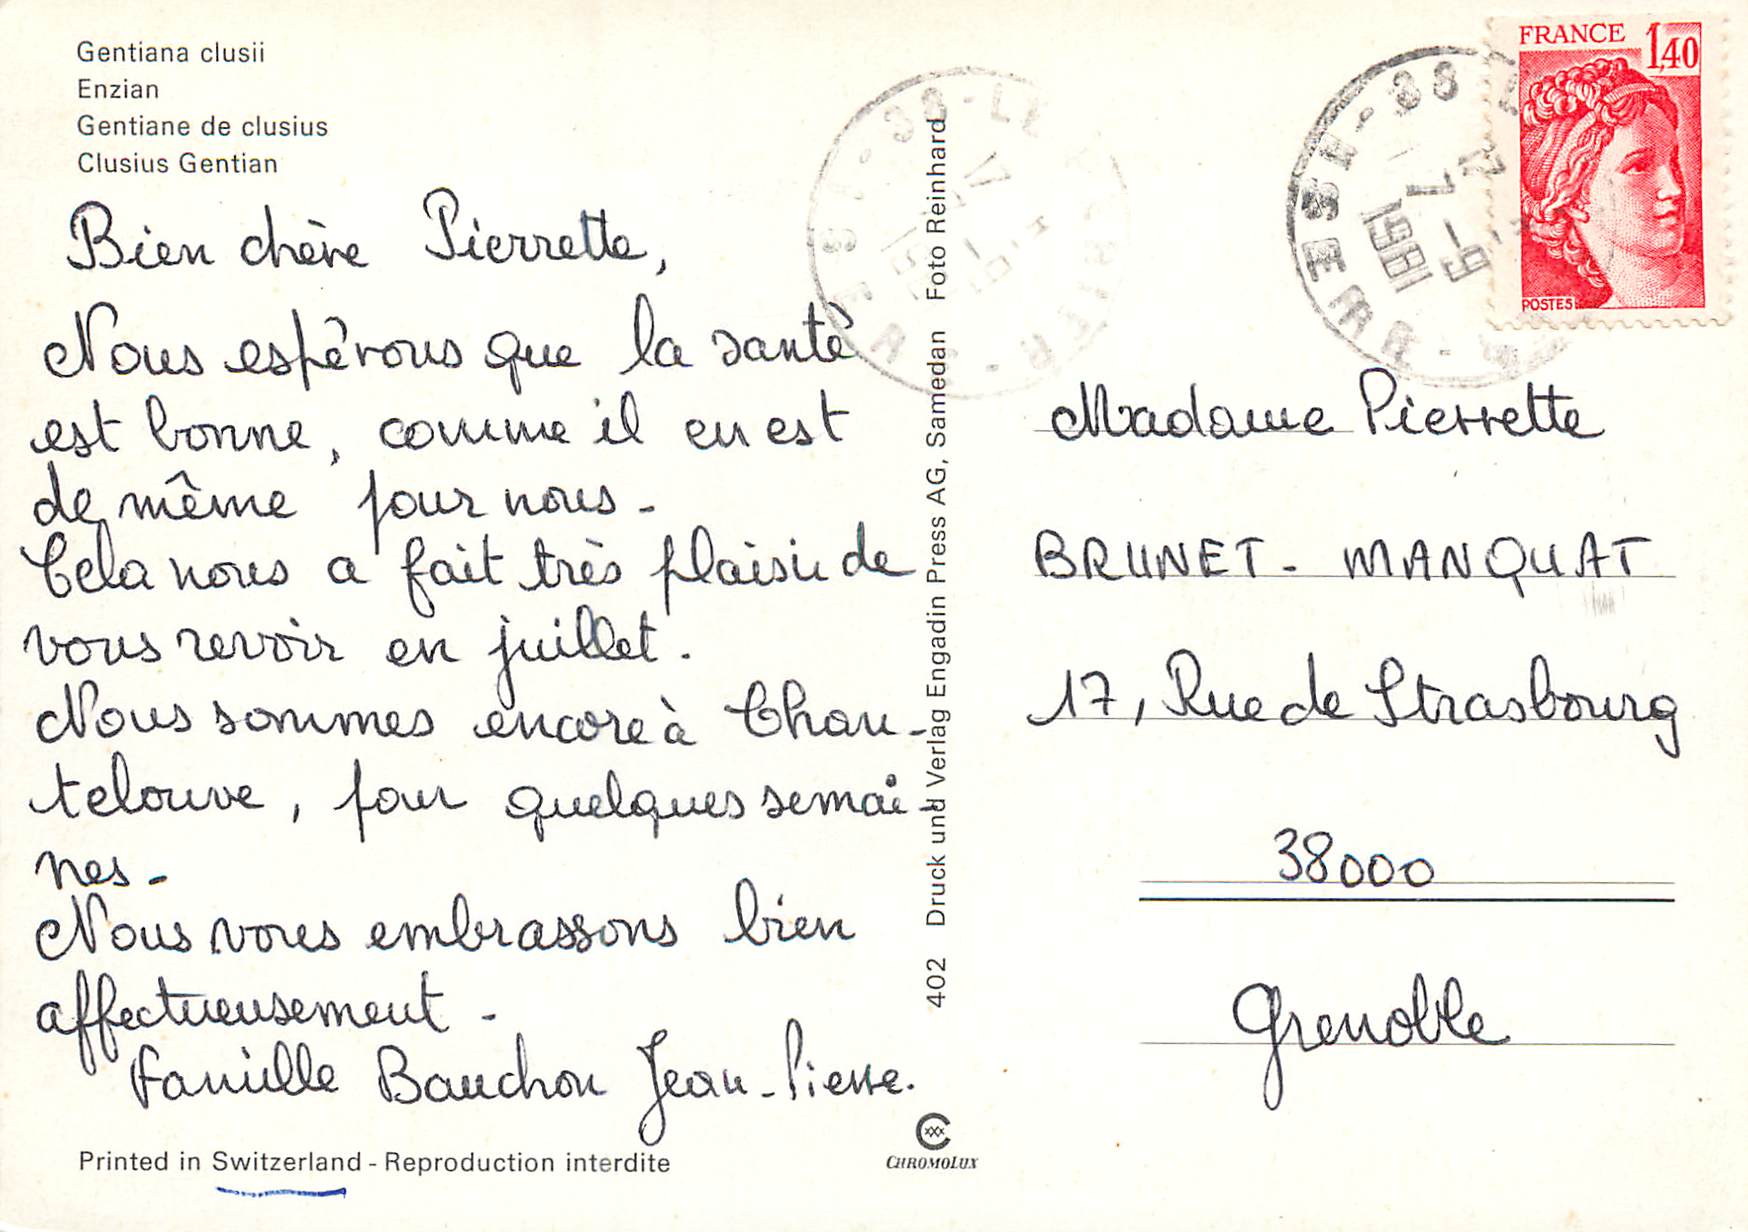 Gentiana clusii
Enzian
Gentiane de clusius
Clusius Gentian
Bien chère Pierrette,
Nous espérons que la santé
est bonne, comme il en est
de même pour nous -
Cela nous a fait très plaisir de
vous revoir en juillet.
Nous sommes encore à Chan-
telouve, pour quelques semai-
nes -
Nous vous embrassons bien
affectueusement -
Famille Bauchon Jean-Pierre.
Printed in Switzerland - Reproduction interdite
402 Druck und Verlag Engadin Press AG, Samedan Foto Reinhard
CHROMOLUX
FRANCE 1,40
POSTES
38
1981
ISERE
Madame Pierrette
BRUNET - MANQUAT
17, Rue de Strasbourg
38000
Grenoble